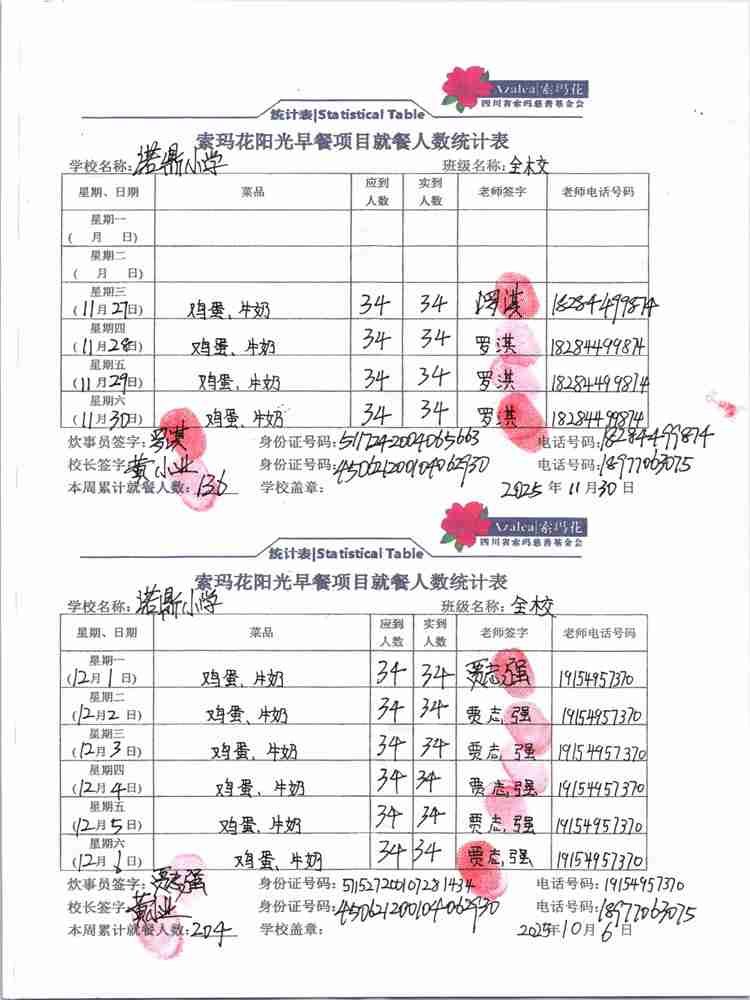 Azalea|索玛花
四川省索玛慈善基金会
统计表|Statistical Table
索玛花阳光早餐项目就餐人数统计表
学校名称:诺斯小学 班级名称:全校
星期、日期 菜品 应到人数 实到人数 老师签字 老师电话号码
星期一
( 月 日)
星期二
( 月 日)
星期三
(11月27日) 鸡蛋、牛奶 34 34 罗淇 18284499874
星期四
(11月28日) 鸡蛋、牛奶 34 34 罗淇 18284499874
星期五
(11月29日) 鸡蛋、牛奶 34 34 罗淇 18284499874
星期六
(11月30日) 鸡蛋、牛奶 34 34 罗淇 18284499874
炊事员签字:罗淇 身份证号码: 电话号码:18284499874
校长签字:黄小业 身份证号码: 电话号码:18977063075
本周累计就餐人数:136 学校盖章: 2025年11月30日
Azalea|索玛花
四川省索玛慈善基金会
统计表|Statistical Table
索玛花阳光早餐项目就餐人数统计表
学校名称:诺斯小学 班级名称:全校
星期、日期 菜品 应到人数 实到人数 老师签字 老师电话号码
星期一
(12月1日) 鸡蛋、牛奶 34 34 贾志强 19154957370
星期二
(12月2日) 鸡蛋、牛奶 34 34 贾志强 19154957370
星期三
(12月3日) 鸡蛋、牛奶 34 34 贾志强 19154957370
星期四
(12月4日) 鸡蛋、牛奶 34 34 贾志强 19154957370
星期五
(12月5日) 鸡蛋、牛奶 34 34 贾志强 19154957370
星期六
(12月6日) 鸡蛋、牛奶 34 34 贾志强 19154957370
炊事员签字:贾志强 身份证号码:511527200107281434 电话号码:19154957370
校长签字:黄小业 身份证号码: 电话号码:18977063075
本周累计就餐人数:204 学校盖章: 2025年10月6日